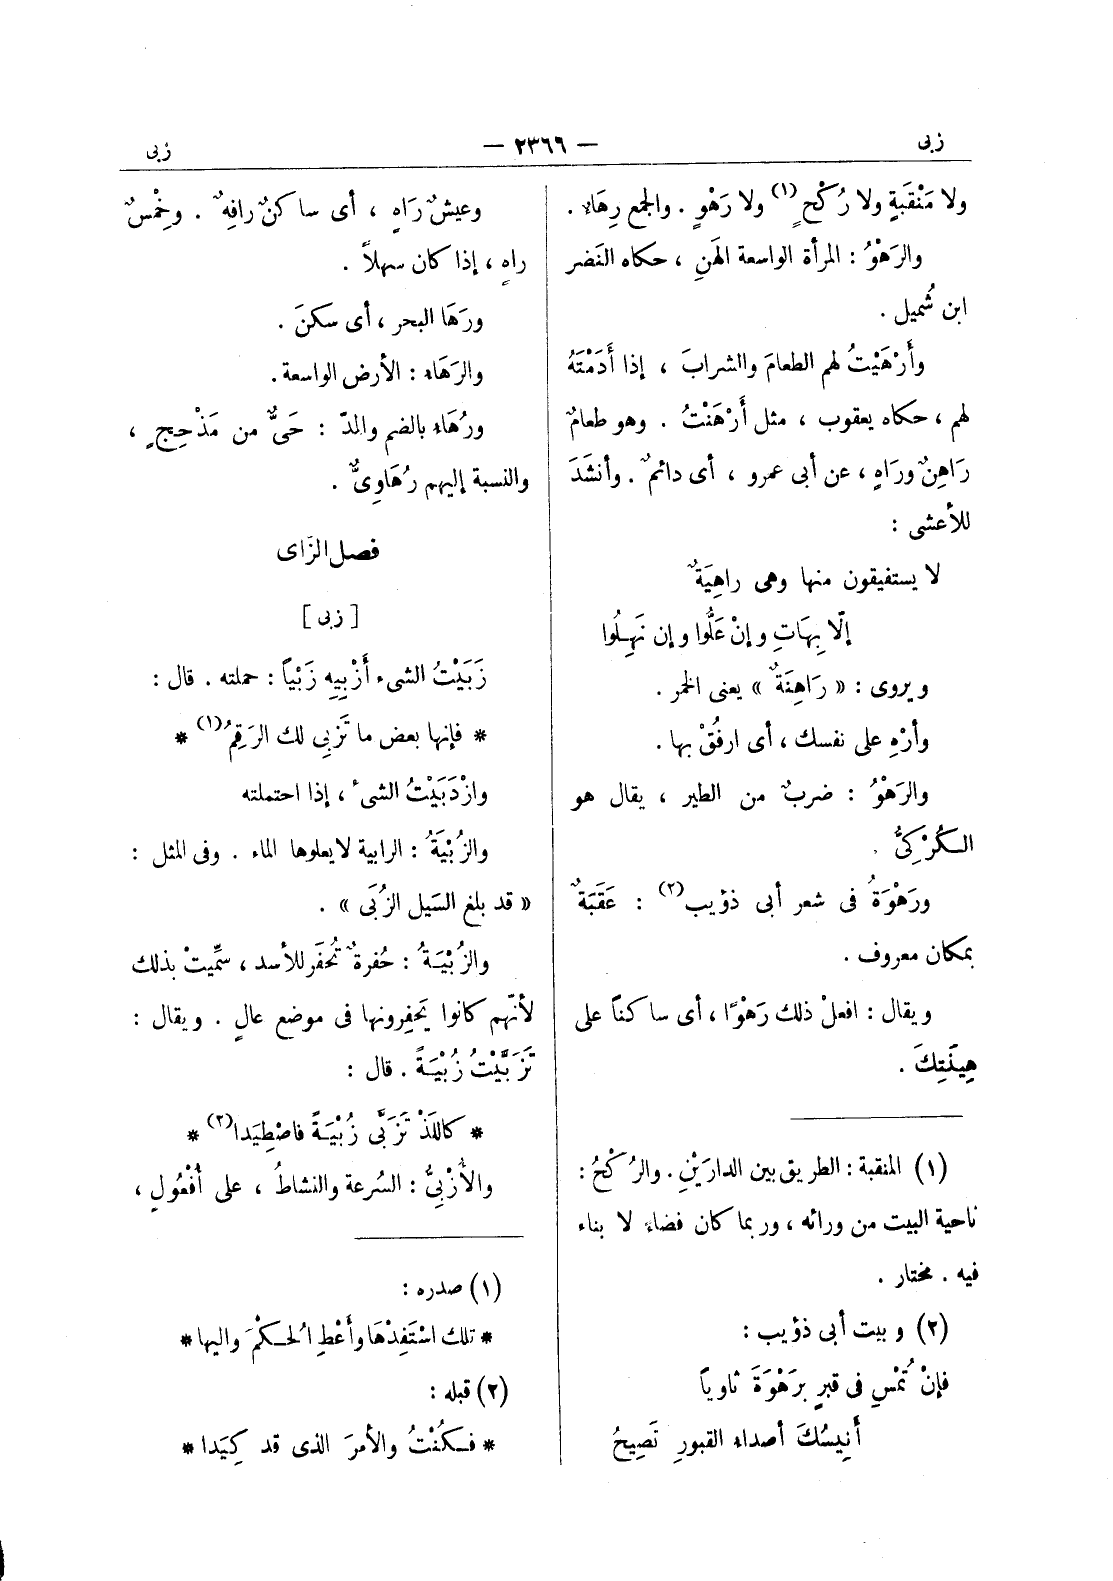 زبى
— ٢٣٦٦ —
زبى
ولا مَنْقَبَةٍ ولا رُكْحٍ(١) ولا رَهْوٍ . والجمع رِهَاء .
والرَهْوُ : المرأة الواسعة الهَنِ ، حكاه النَضر
ابن شُميل .
وأَرْهَيْتُ لهم الطعامَ والشرابَ ، إذا أَدَمْتَهُ
لهم ، حكاه يعقوب ، مثل أَرْهَنْتُ . وهو طعامٌ
رَاهِنٌ ورَاهٍ ، عن أبى عمرو ، أى دائمٌ . وأنشَدَ
للأعشى :
لا يستفيقون منها وهى راهِيَةٌ
إلّا بِهَاتِ وإنْ عَلُّوا وإن نَهِلُوا
ويروى : « رَاهِنَةٌ » يعنى الخمر .
وأرْهِ على نفسك ، أى ارفُقْ بها .
والرَهْوُ : ضربٌ من الطير ، يقال هو
الكُرْكِىُّ .
ورَهْوَةُ فى شعر أبى ذؤيب(٢) : عَقَبَةٌ
بمكان معروف .
ويقال : افعلْ ذلك رَهْوًا ، أى ساكناً على
هِينَتِكَ .
(١) المنقبة : الطريق بين الدارَيْنِ . والرُكْحُ :
ناحية البيت من ورائه ، وربما كان فضاءً لا بناء
فيه . مختار .
(٢) وبيت أبى ذؤيب :
فإنْ تُمْسِ فى قبرٍ برَهْوَةَ ثاوياً
أَنِيسُكَ أصداء القبورِ تَصِيحُ
وعيشٌ رَاهٍ ، أى ساكنٌ رافِهٌ . وخِمْسٌ
راهٍ ، إذا كان سهلاً .
ورَهَا البحر ، أى سكنَ .
والرَهَاء : الأرض الواسعة .
ورُهَاء بالضم والمدّ : حَىٌّ من مَذْحِجٍ ،
والنسبة إليهم رُهَاوِىٌّ .
فصل الزَاى
[ زبى ]
زَبَيْتُ الشىء أَزْبِيهِ زَبْياً : حملته . قال :
* فإنها بعض ما تَزْبِى لك الرَقِمُ(١) *
وازْدَبَيْتُ الشىء ، إذا احتملته
والزُبْيَةُ : الرابية لا يعلوها الماء . وفى المثل :
« قد بلغ السَيل الزُبَى » .
والزُبْيَةُ : حُفرةٌ تُحفَر للأسد ، سمِّيتْ بذلك
لأنّهم كانوا يَحفِرونها فى موضع عالٍ . ويقال :
تَزَبَّيْتُ زُبْيَةً . قال :
* كاللَذْ تَزَبَّى زُبْيَةً فاصْطِيدا(٢) *
والأُزْبِىُّ : السُرعة والنشاطُ ، على أُفْعُولٍ ،
(١) صدره :
* تلك اسْتَفِدْهَا وأَعْطِ الحكْمَ واليها *
(٢) قبله :
* فكُنْتُ والأمرَ الذى قد كِيَدا *